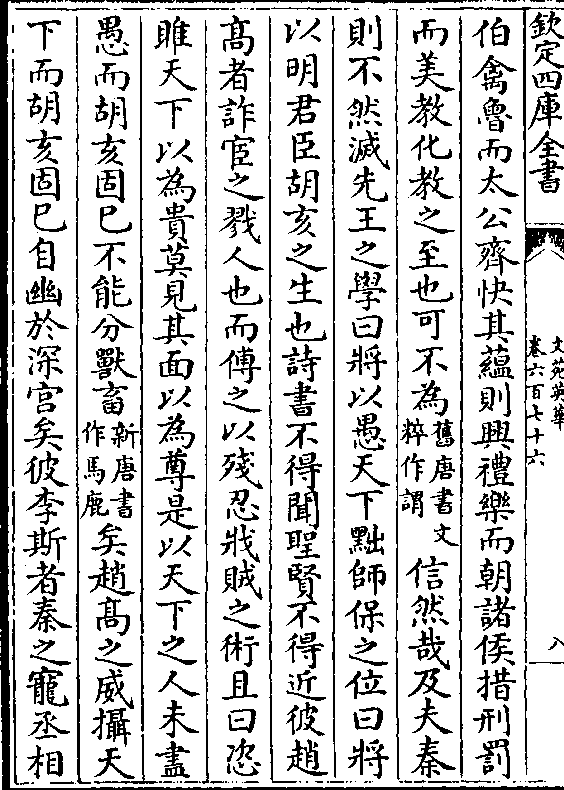 欽定四庫全書
文苑英華
卷六百七十六
八
伯禽魯而太公齊快其蘊則興禮樂而朝諸侯措刑罰
而美教化教之至也可不為舊唐書文粹作謂信然哉及夫秦
則不然滅先王之學曰將以愚天下黜師保之位曰將
以明君臣胡亥之生也詩書不得聞聖賢不得近彼趙
髙者詐宦之戮人也而傅之以殘忍戕賊之術且曰恣
睢天下以為貴莫見其面以為尊是以天下之人未盡
愚而胡亥固已不能分獸畜新唐書作馬鹿矣趙髙之威攝天
下而胡亥固已自幽於深宫矣彼李斯者秦之寵丞相